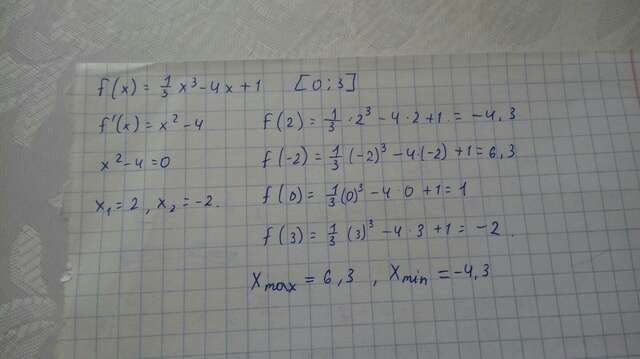 f(x) = 1/3 x³ - 4x + 1 [0; 3]
f'(x) = x² - 4
x² - 4 = 0
x₁ = 2, x₂ = -2.
f(2) = 1/3 · 2³ - 4 · 2 + 1 = -4,3
f(-2) = 1/3 (-2)³ - 4·(-2) + 1 = 6,3
f(0) = 1/3 (0)³ - 4 · 0 + 1 = 1
f(3) = 1/3 (3)³ - 4 · 3 + 1 = -2.
Xmax = 6,3 , Xmin = -4,3